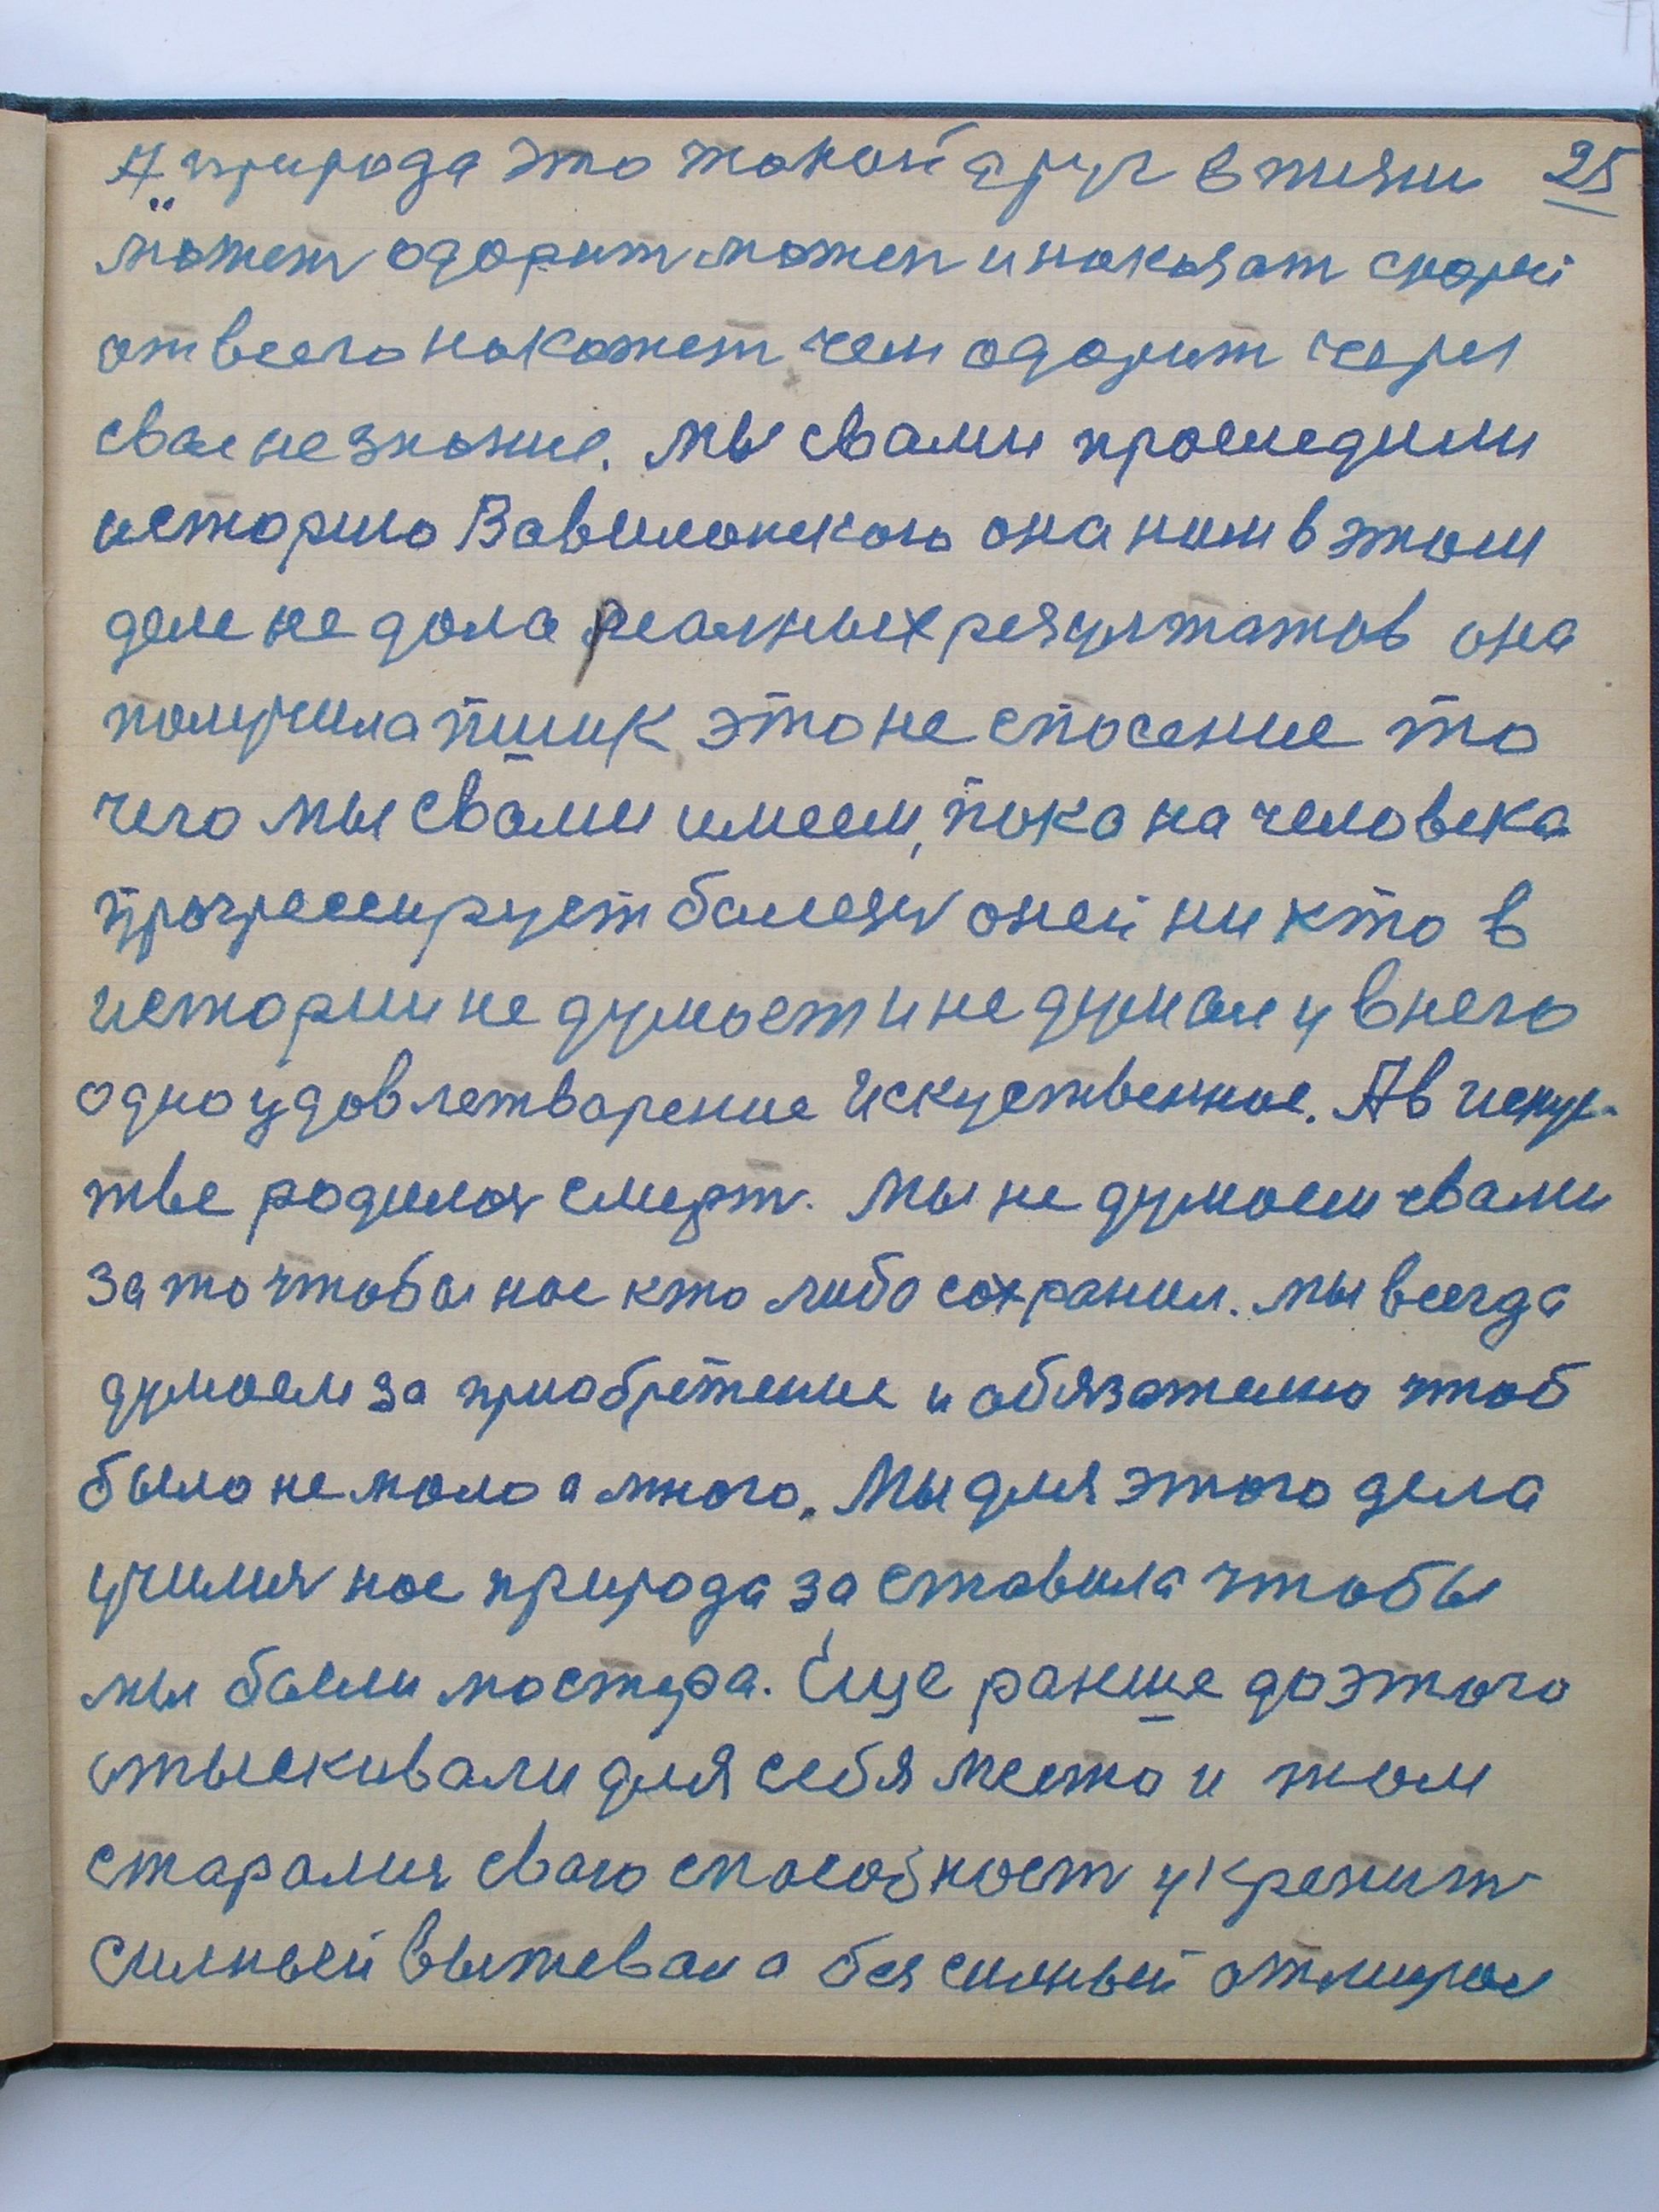 А природа это такой друг в жизни 25
может одорит может и показат скорей
от всего накажет чем одорит через
свое не знание. Мы свами проследили
историю Вавилонскою она нам в этом
деле не дала реалных результатов она
получила пшик это не спасение то
чего мы свами имеем, пока на человека
прогрессирует болезн о ней ни кто в
истории не думает и не думал у в него
одно удовлетварение искуственное. А в искус-
тве родился смерт. Мы не думаем свами
за то чтобы нас кто либо сохранил. мы всегда
думаем за приобретение и обязателно чтоб
было не мало а много. Мы для этого дела
учимся нас природа за ставила чтобы
мы были мастера. Еще ранше до этого
отыскивали для себя место и там
старались сваю способност укрепит
силный выжевал а без силный отмирал